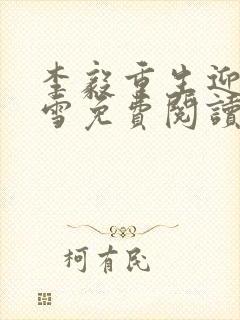 李毅重生迎
雪免費閱讀
柯有民